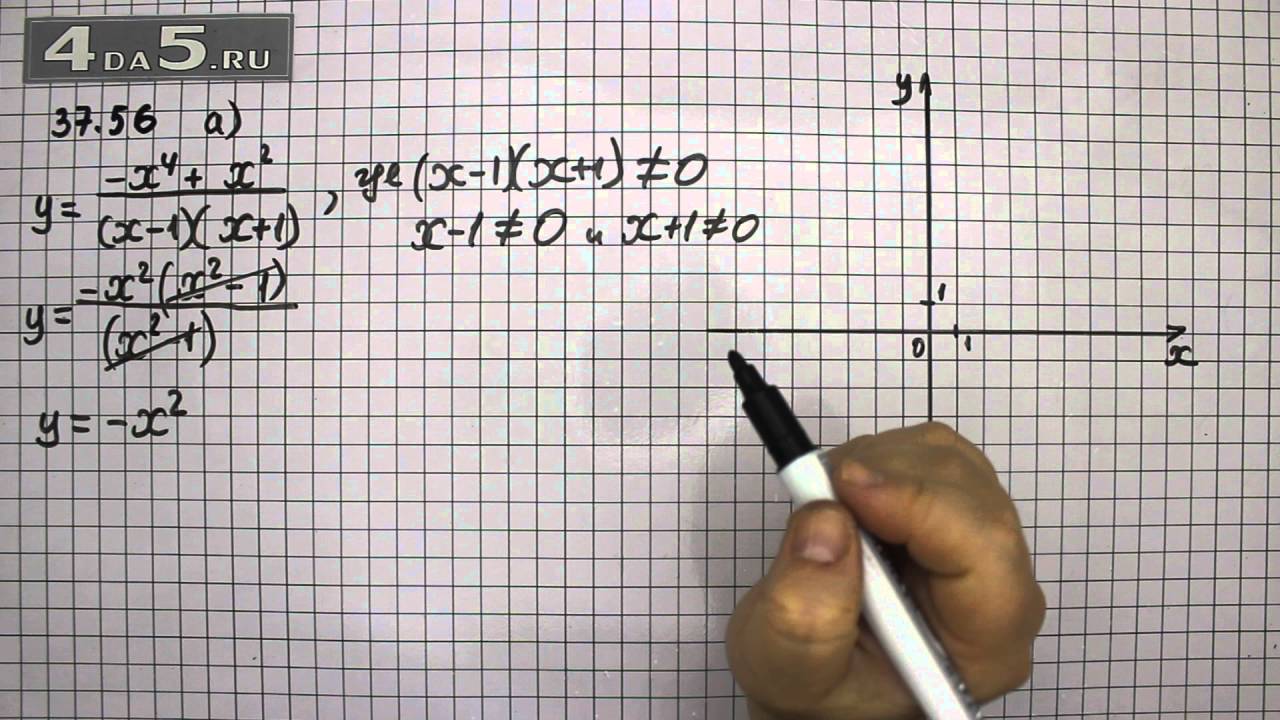 4DA5.RU
37.56 а)
y = \frac{-x^4 + x^2}{(x-1)(x+1)}, где (x-1)(x+1) ≠ 0
x-1 ≠ 0 и x+1 ≠ 0
y = \frac{-x^2(x^2-1)}{(x^2-1)}
y = -x^2
y
1
0 1
x